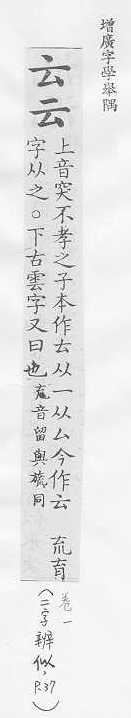 增廣字學舉隅
𠫓云
上音突不孝之子本作𠫓从一从厶今作𠫓 㐬育
字从之。下古雲字又曰也㐬音留與旒同
卷一
(二字辨似, P.37)